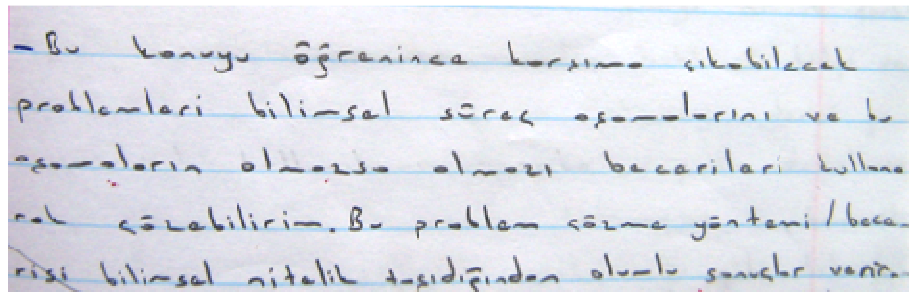 - Bu konuyu öğrenince karşıma çıkabilecek
problemleri bilimsel süreç aşamalarını ve bu
aşamaların olmazsa olmazı becerileri kullana
rak çözebilirim. Bu problem çözme yöntemi / bece-
risi bilimsel nitelik taşıdığından olumlu sonuçlar verir.